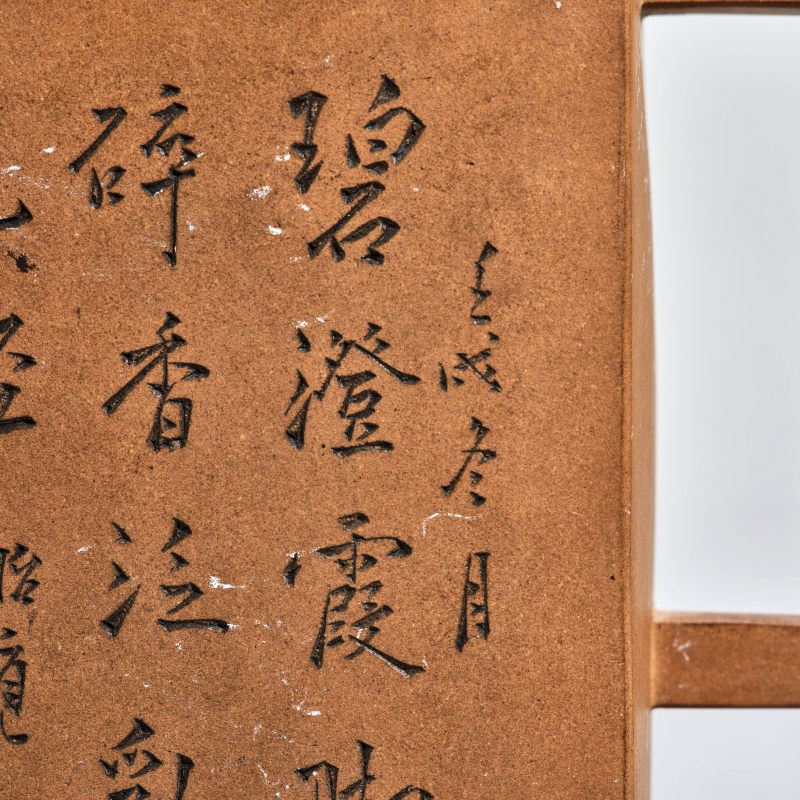 壬戌冬月
碧澄霞脚
碎香泛乳